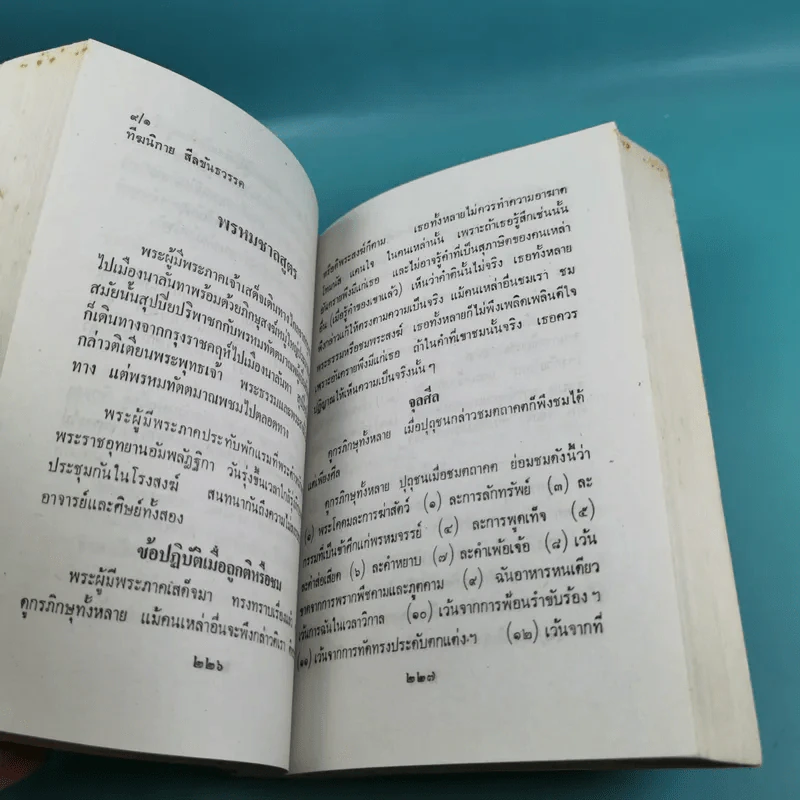 ๙/๑
ทีฆนิกาย สีลขันธวรรค
พรหมชาลสูตร
พระผู้มีพระภาคเจ้าเสด็จเดินทางไกลจาก
ไปเมืองนาลันทาพร้อมด้วยภิกษุสงฆ์หมู่ใหญ่
สมัยนั้นสุปปิยปริพาชกกับพรหมทัตตมาณพ
ก็เดินทางจากกรุงราชคฤห์ไปเมืองนาลันทา
กล่าวติเตียนพระพุทธเจ้า พระธรรมและพระ
ทาง แต่พรหมทัตตมาณพชมไปตลอดทาง
พระผู้มีพระภาคประทับพักแรมที่พระตำหนัก
พระราชอุทยานอัมพลัฏฐิกา วันรุ่งขึ้นเวลาใกล้รุ่ง
ประชุมกันในโรงสงฆ์ สนทนากันถึงความไม่
อาจารย์และศิษย์ทั้งสอง
ข้อปฏิบัติเมื่อถูกติหรือชม
พระผู้มีพระภาคเสด็จมา ทรงทราบเรื่องแล้ว
ดูกรภิกษุทั้งหลาย แม้คนเหล่าอื่นจะพึงกล่าวติเรา
๒๒๖
หรือติพระสงฆ์ก็ตาม เธอทั้งหลายไม่ควรทำความอาฆาต
โทมนัส แค้นใจ ในคนเหล่านั้น เพราะถ้าเธอรู้สึกเช่นนั้น
อันตรายพึงมีแก่เธอ และไม่อาจรู้คำที่เป็นสุภาษิตของคนเหล่า
อื่น (เมื่อรู้คำของเขาแล้ว) เห็นว่าคำตินั้นไม่จริง เธอทั้งหลาย
พึงกล่าวแก้ให้ตรงตามความเป็นจริง แม้คนเหล่าอื่นชมเรา ชม
พระธรรมหรือชมพระสงฆ์ เธอทั้งหลายก็ไม่พึงเพลิดเพลินดีใจ
เพราะอันตรายพึงมีแก่เธอ ถ้าในคำที่เขาชมนั้นจริง เธอควร
ปฏิญาณให้เห็นความเป็นจริงนั้น ๆ
จุลศีล
ดูกรภิกษุทั้งหลาย เมื่อปุถุชนกล่าวชมตถาคตก็พึงชมได้
แต่เพียงศีล
ดูกรภิกษุทั้งหลาย ปุถุชนเมื่อชมตถาคต ย่อมชมดังนี้ว่า
(๑) พระโคดมละการฆ่าสัตว์ (๑) ละการลักทรัพย์ (๓) ละ
กรรมที่เป็นข้าศึกแก่พรหมจรรย์ (๔) ละการพูดเท็จ (๕)
ละคำส่อเสียด (๖) ละคำหยาบ (๗) ละคำเพ้อเจ้อ (๘) เว้น
ขาดจากการพรากพืชคามและภูตคาม (๙) ฉันอาหารหนเดียว
เว้นการฉันในเวลาวิกาล (๑๐) เว้นจากการฟ้อนรำขับร้อง ฯ
(๑๑) เว้นจากการทัดทรงประดับตกแต่งฯ (๑๒) เว้นจากที่
๒๒๗